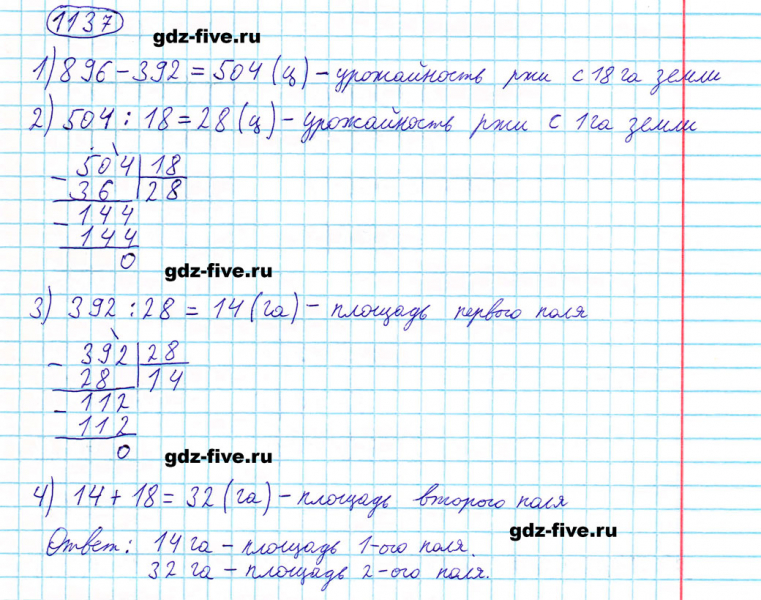 1137
gdz-five.ru
1) 896 - 392 = 504 (ц) - урожайность ржи с 18 га земли
2) 504 : 18 = 28 (ц) - урожайность ржи с 1 га земли
504 | 18
- 36 | 28
- 144
144
0
gdz-five.ru
3) 392 : 28 = 14 (га) - площадь первого поля
- 392 | 28
28 | 14
- 112
112
0
gdz-five.ru
4) 14 + 18 = 32 (га) - площадь второго поля
gdz-five.ru
Ответ: 14 га - площадь 1-ого поля.
32 га - площадь 2-ого поля.